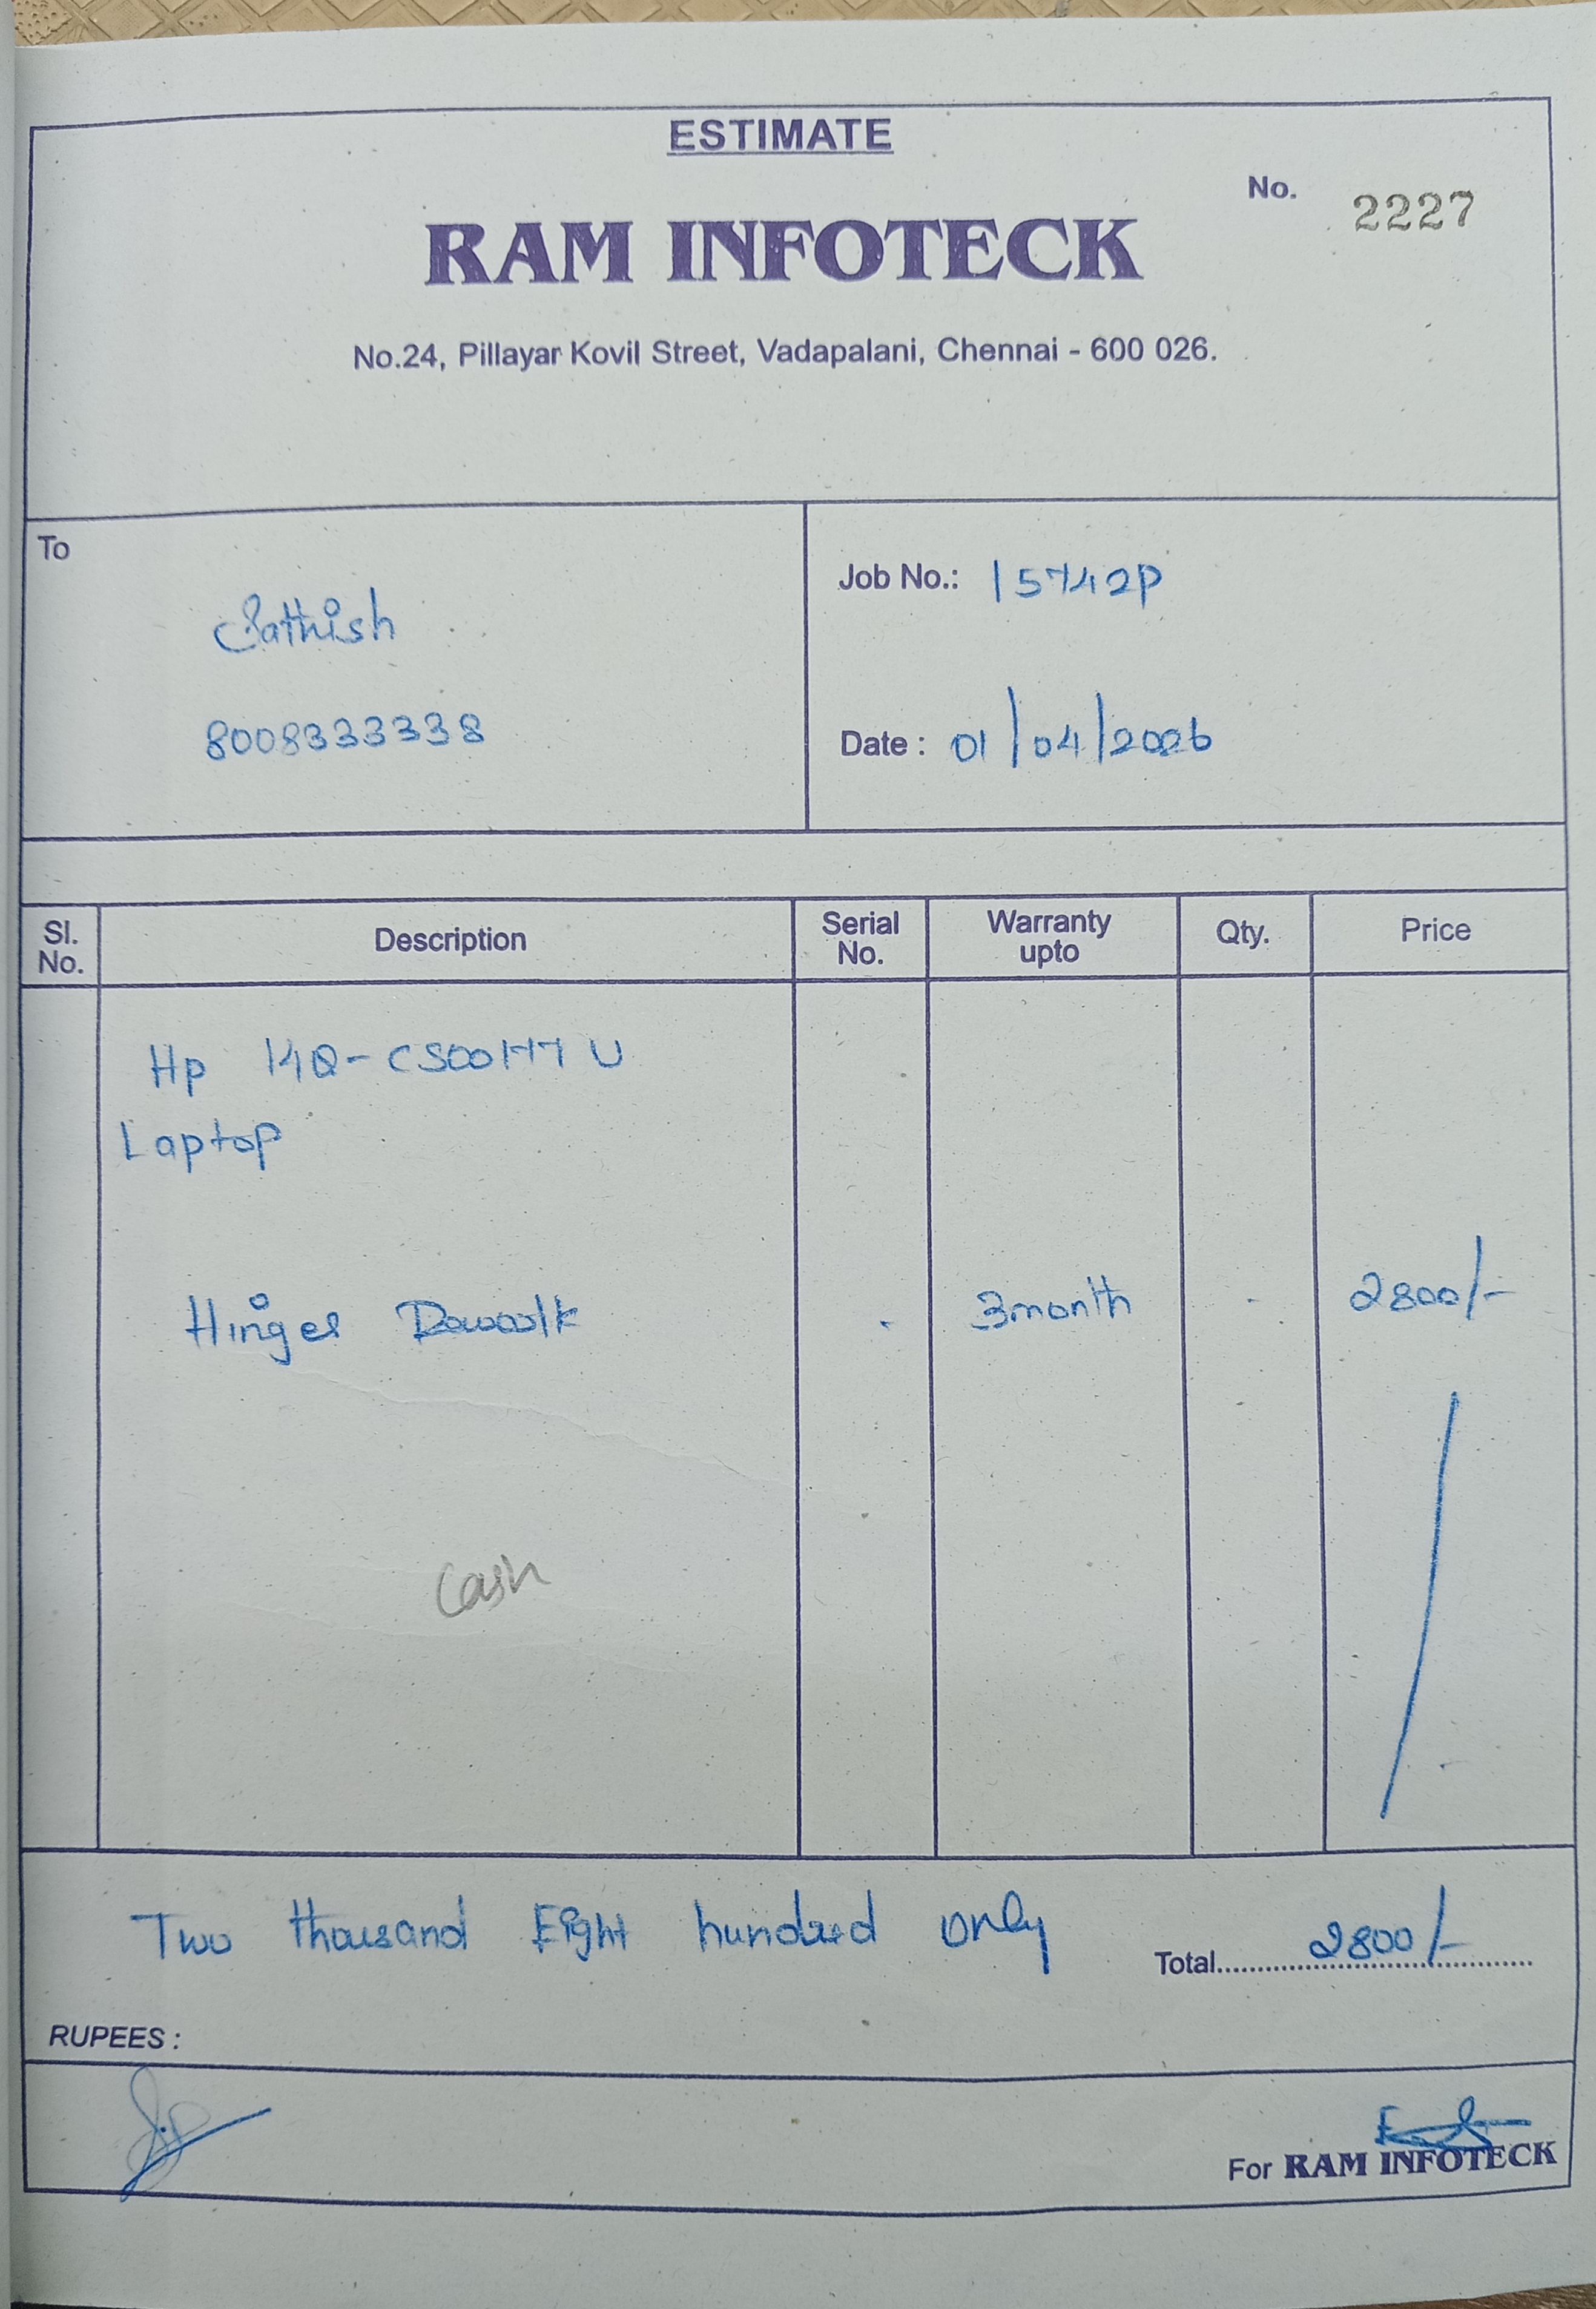 ESTIMATE
No. 2227
RAM INFOTECK
No.24, Pillayar Kovil Street, Vadapalani, Chennai - 600 026.
To
Job No.: 15742P
Sathish
8008333338
Date : 01/04/2026
Sl. No. Description Serial No. Warranty upto Qty. Price
Hp 14Q-CS0017TU
Laptop
Hinges - 3month - 2800/-
Cash
Two thousand Eight hundred only
Total 2800/-
RUPEES :
For RAM INFOTECK